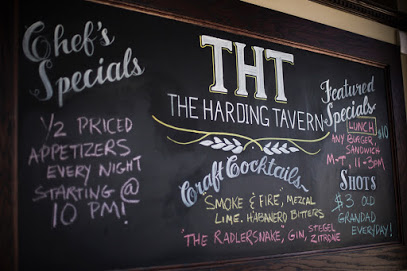 Chef's
Specials
1/2 PRICED
APPETIZERS
EVERY NIGHT
STARTING @
10 PM!
THT
THE HARDING TAVERN
Craft Cocktails
SMOKE & FIRE", MEZCAL
LIME, HABANERO BITTERS
"THE RADLERSNAKE", GIN, STEGEL
ZITRONE
Featured
Specials
LUNCH $10
ANY BURGER,
SANDWICH
M-F, 11-3PM
SHOTS
$3 OLD
GRANDAD
EVERYDAY!